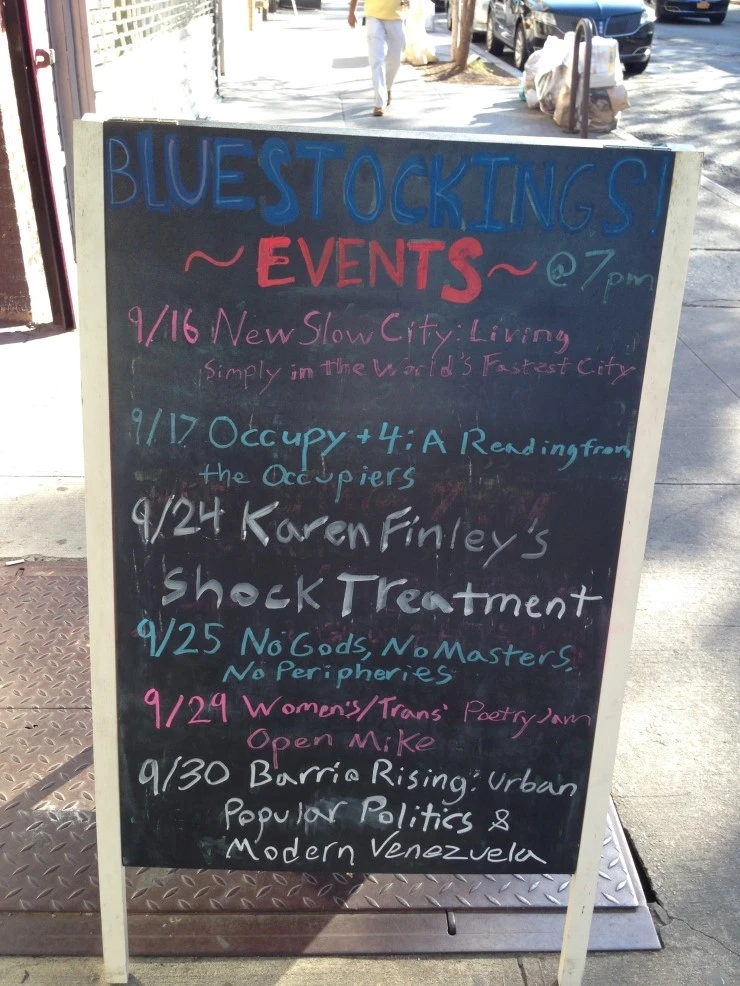 BLUESTOCKINGS!
~EVENTS~ @7pm
9/16 New Slow City: Living
Simply in the World's Fastest City
9/17 Occupy +4: A Reading from
the Occupiers
9/24 Karen Finley's
Shock Treatment
9/25 No Gods, No Masters,
No Peripheries
9/29 Women's/Trans' Poetry Jam
Open Mike
9/30 Barrio Rising: Urban
Popular Politics &
Modern Venezuela